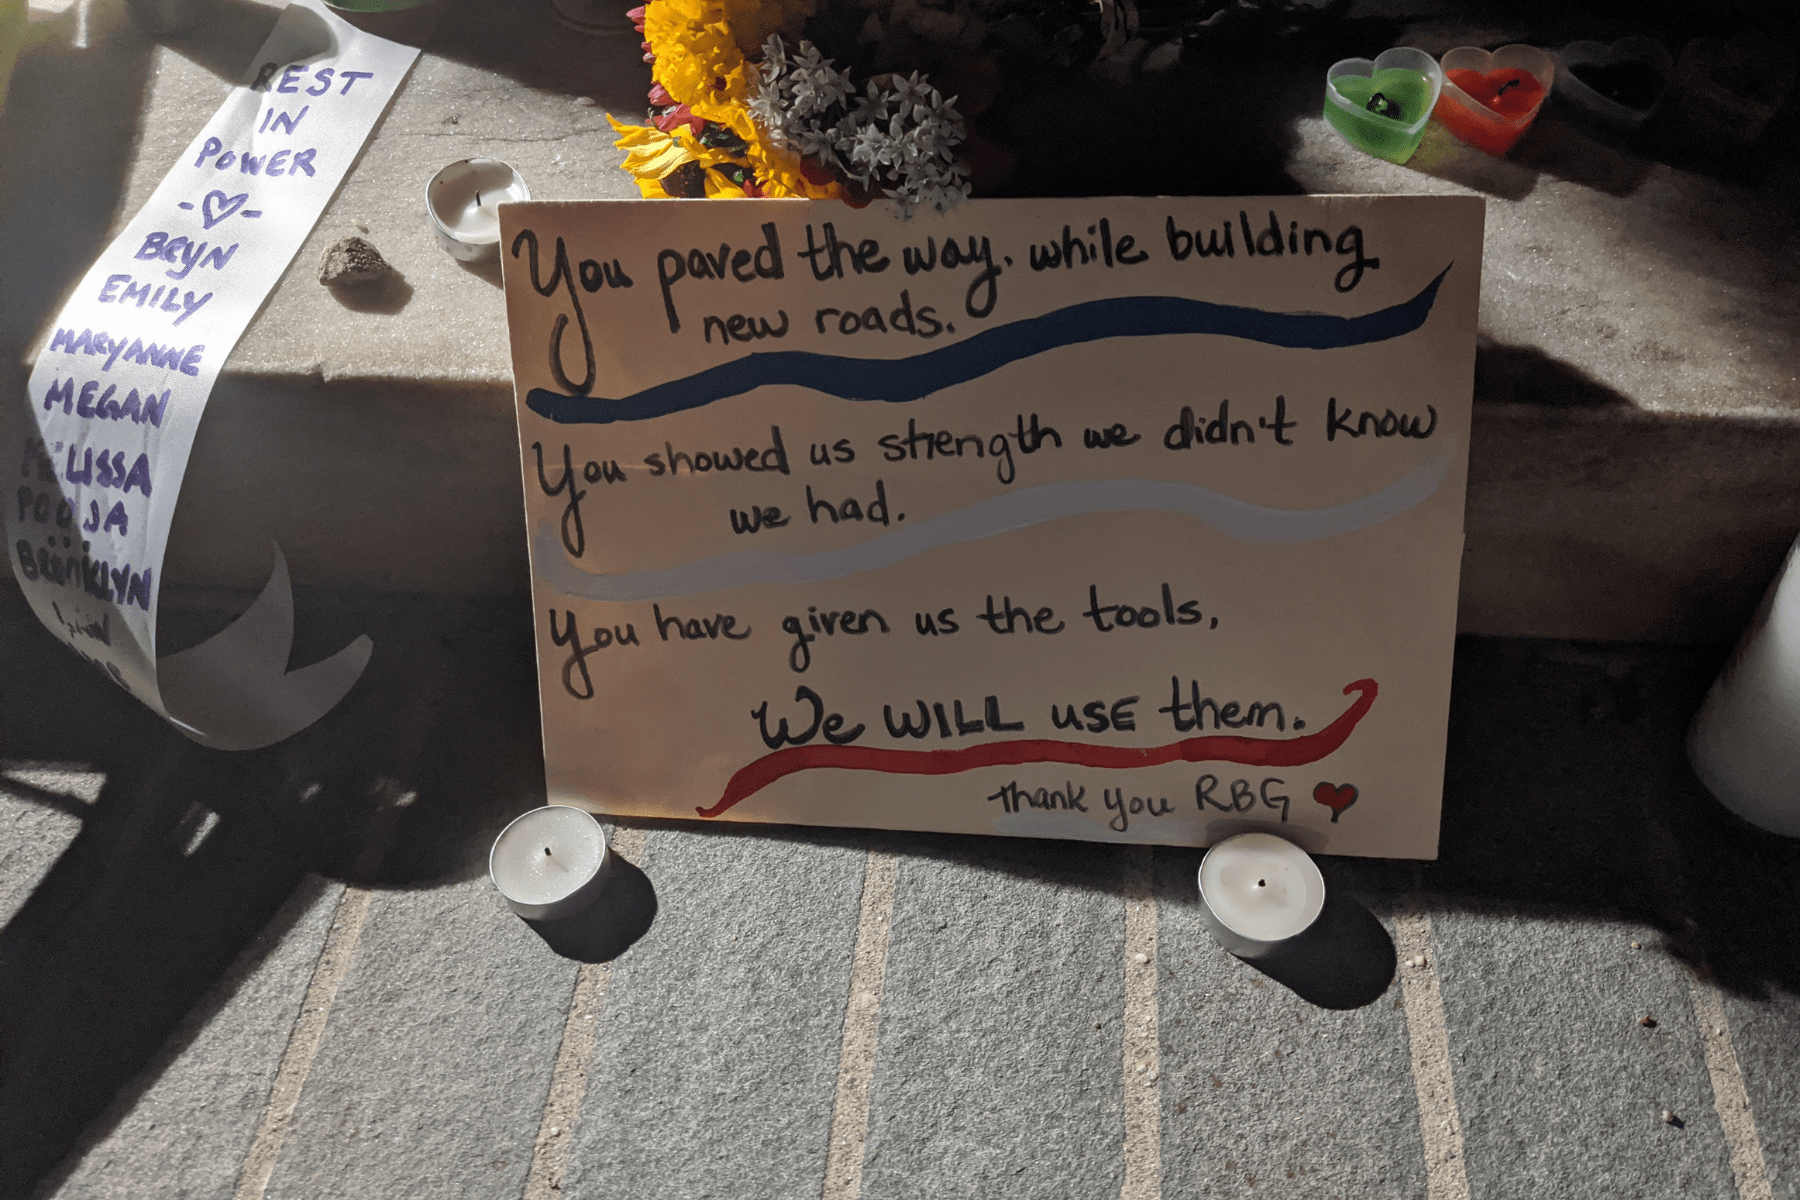 REST
IN
POWER
BRYN
EMILY
MARYANNE
MEGAN
MELISSA
POOJA
You paved the way. while building
new roads.
You showed us strength we didn't know
we had.
You have given us the tools,
We WILL USE them.
Thank you RBG